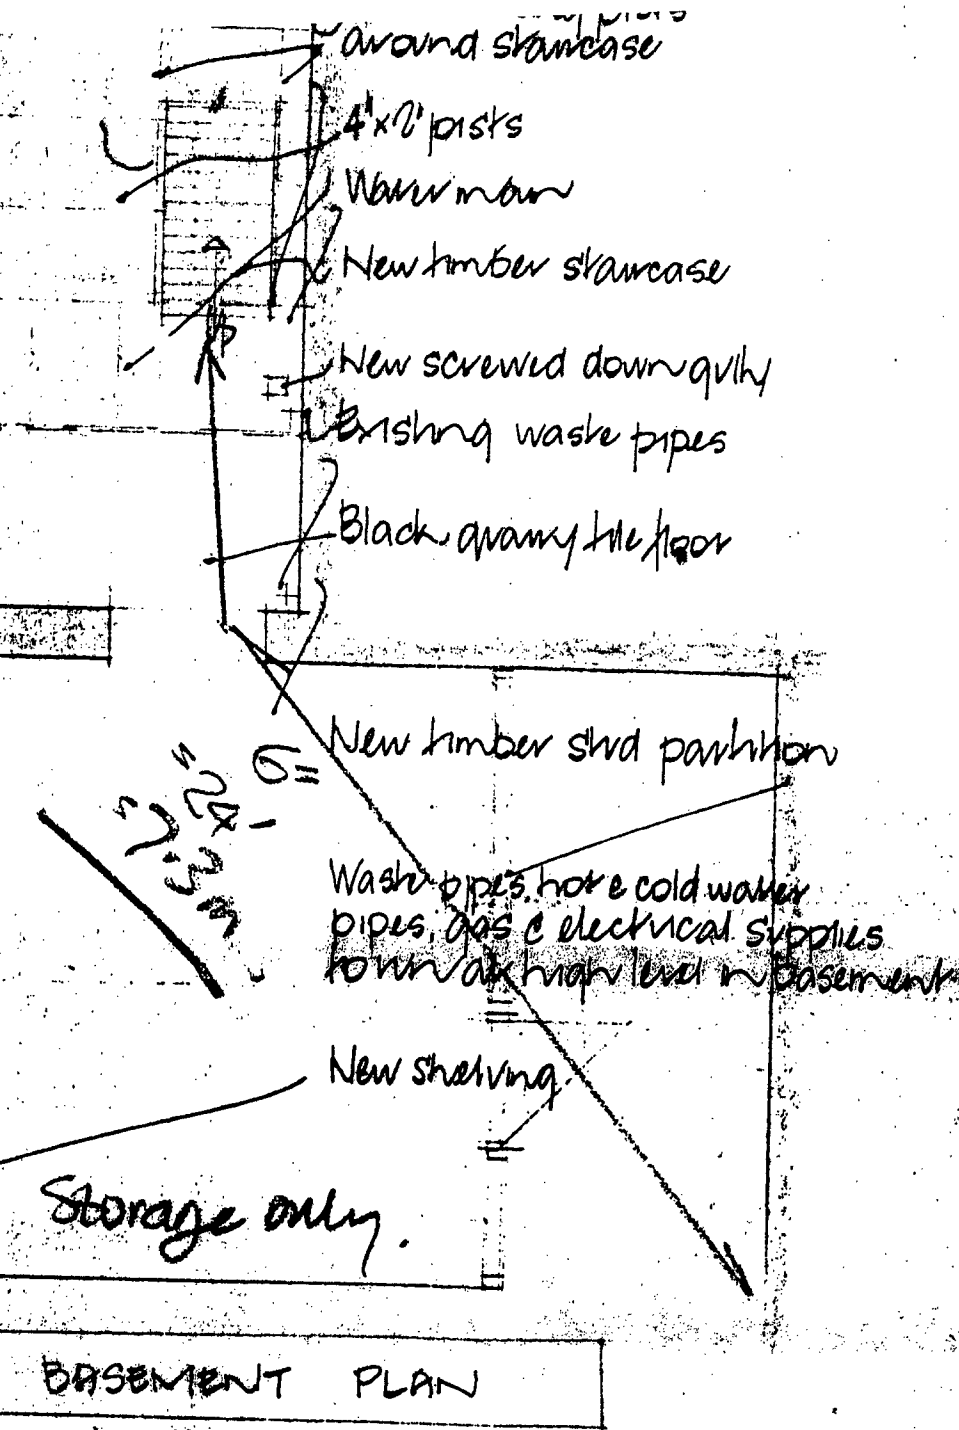 around staircase
4"x2" posts
Water main
New timber staircase
New screwed down gully
Existing waste pipes
Black quarry tile floor
New timber stud partition
6"
24'
7.3m
Waste pipes, hot & cold water
pipes, gas & electrical supplies
to run at high level in basement
New shelving
Storage only.
BASEMENT PLAN